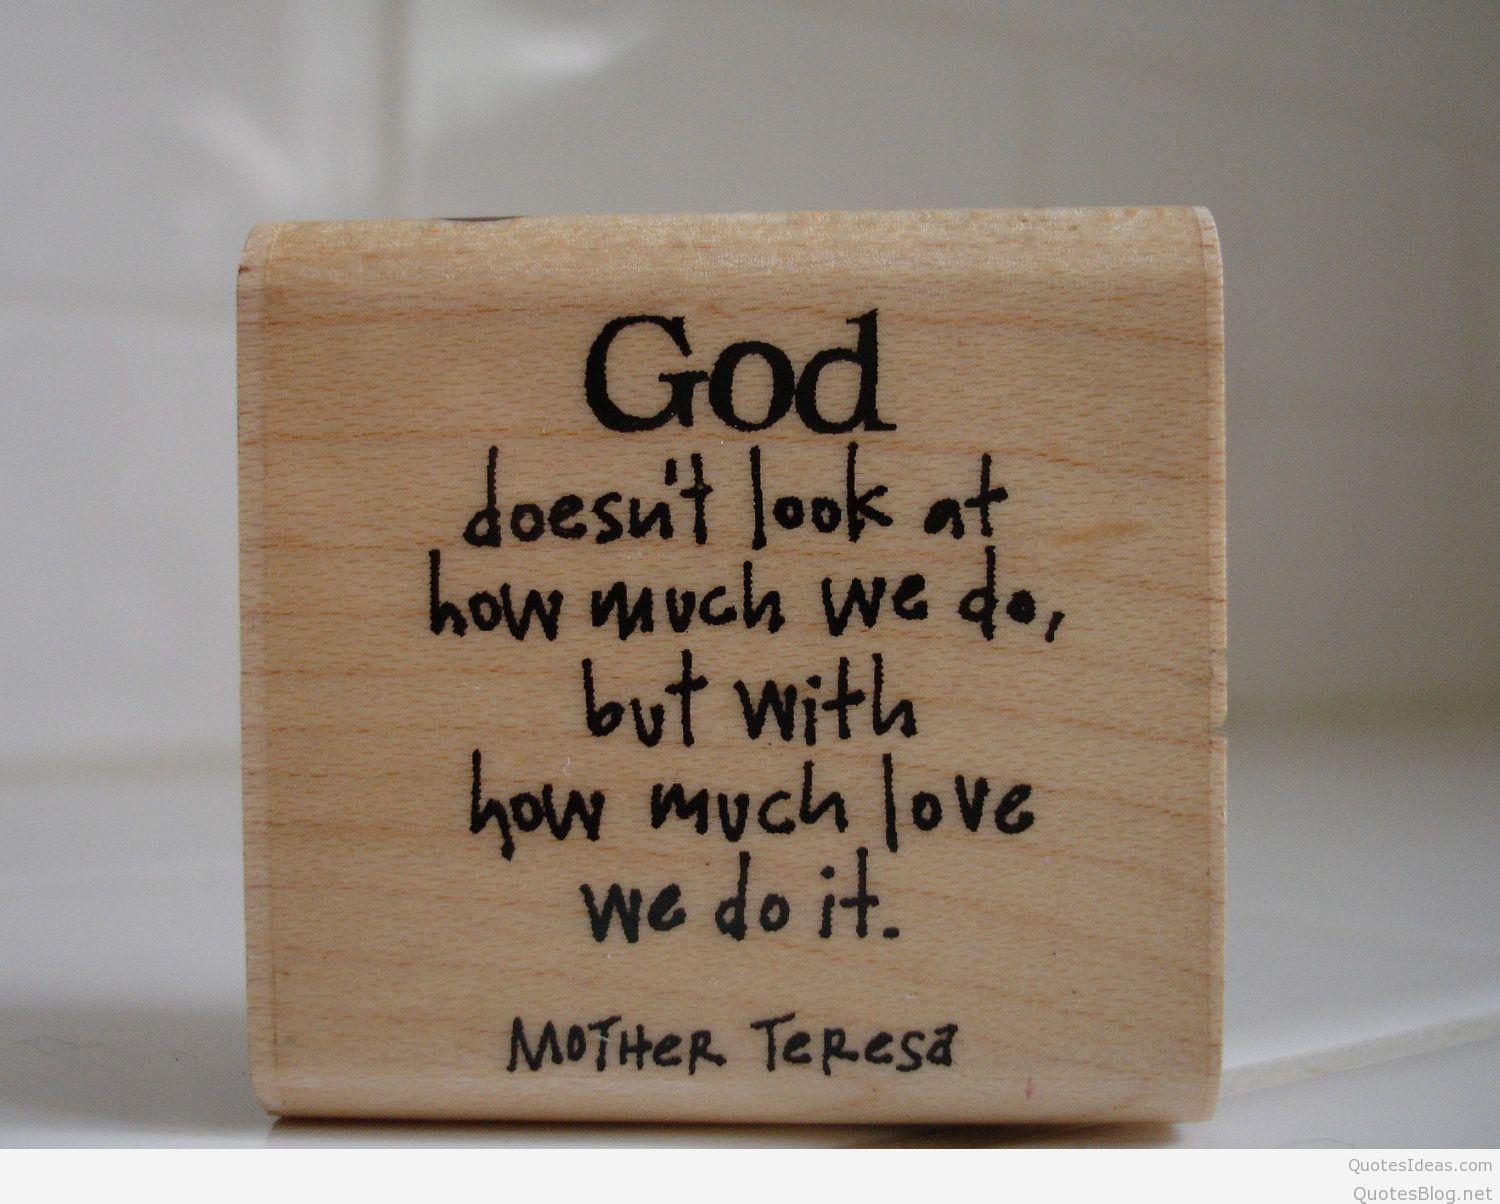 God
doesn't look at
how much we do,
but with
how much love
we do it.
MOTHER TERESA
QuotesIdeas.com
QuotesBlog.net